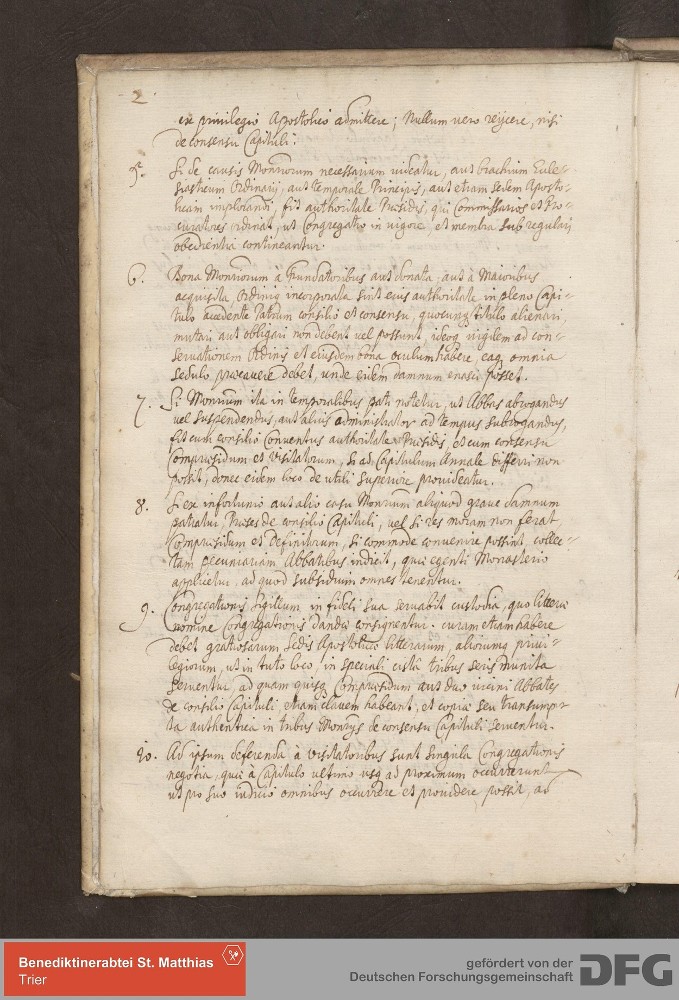 2
ex privilegio Apostolico admittere; Nullum vero reijcere, nisi
de consensu Capituli.
5. Si de causis Monriorum necessarium uideatur, aut brachium Eccle-
siasticum Ordinarij, aut temporale Principis, aut etiam sedem Aposto-
licam implorandi, fit authoritate Præsidis, qui Commissarios et Pro-
curatores ordinat, ut Congregatio in uigore, et membra sub regulari
obedientia contineantur.
6. Bona Monriorum à Fundatoribus aut donata, aut à Maioribus
acquisita, Ordiniq incorporata sint eius authoritate in pleno Capi-
tulo accedente Patrum consilio et consensu, quocunq titulo alienari,
mutari aut obligari non debent uel possunt, ideoq uigilem ad con-
seruationem Ordinis et eiusdem bona oculum habere, eaq omnia
sedulo præcauere debet, unde eidem damnum enasci posset.
7. Si Monrium ita in temporalibus pati notetur, ut Abbas abrogandus
uel suspendendus, aut alius administrator ad tempus subrogandus,
fit cum consilio Conuentus authoritate Præsidis, et cum consensu
Compræsidum et Visitatorum, si ad Capitulum Annale differri non
possit, donec eidem loco de utili superiore prouideatur.
8. Si ex infortunio aut alio casu Monrium aliquod graue damnum
patiatur, Præses de consilio Capituli, uel si res moram non ferat,
Compræsidum et Definitorum, si commode conuenire possint, collec-
tam pecuniariam Abbatibus indicit, quæ egenti Monasterio
applicetur, ad quod subsidium omnes tenentur.
9. Congregationis sigillum in fideli sua seruabit custodia, quo litteræ
nomine Congregationis dandæ consignentur. curam etiam habere
debet gratiosarum Sedis Apostolicæ litterarum, aliorumq priui-
legiorum, ut in tuto loco, in speciali cista tribus seris munita
seruentur, ad quam quisq Compræsidum aut duo uicini Abbates
de consilio Capituli etiam clauem habeant, et copiæ seu transump-
ta authentica in tribus Monrijs de consensu Capituli seruentur.
10. Ad ipsum deferenda à Visitatoribus sunt singula Congregationis
negotia, quæ à Capitulo ultimo usq ad proximum occurrerunt
ut pro suo iudicio omnibus occurrere et prouidere possit, ad
Benediktinerabtei St. Matthias
Trier
gefördert von der
Deutschen Forschungsgemeinschaft
DFG